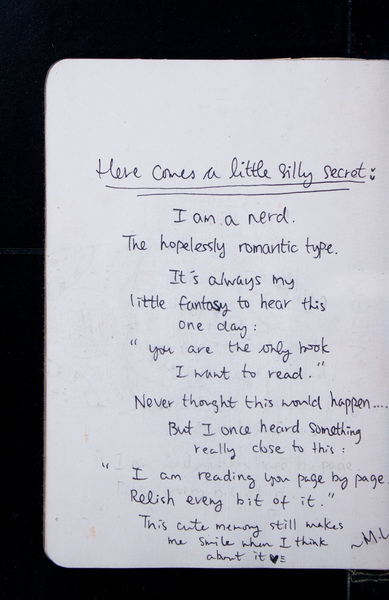 Here comes a little silly secret:
I am a nerd.
The hopelessly romantic type.
It's always my
little fantasy to hear this
one day:
"you are the only book
I want to read."
Never thought this would happen....
But I once heard something
really close to this:
"I am reading you page by page.
Relish every bit of it."
This cute memory still makes
me smile when I think
about it ♥
~M.